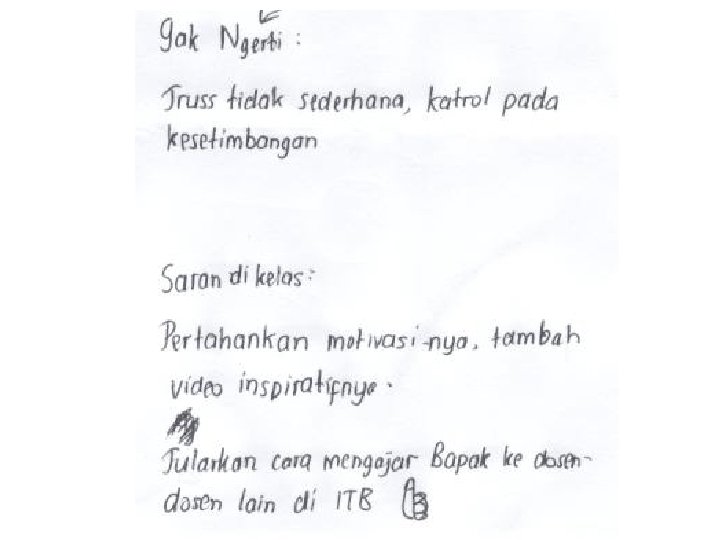 gak Ngerti :
Truss tidak sederhana, katrol pada
kesetimbangan
Saran di kelas :
Pertahankan motivasi-nya, tambah
video inspiratifnya.
Tularkan cara mengajar Bapak ke dosen-
dosen lain di ITB